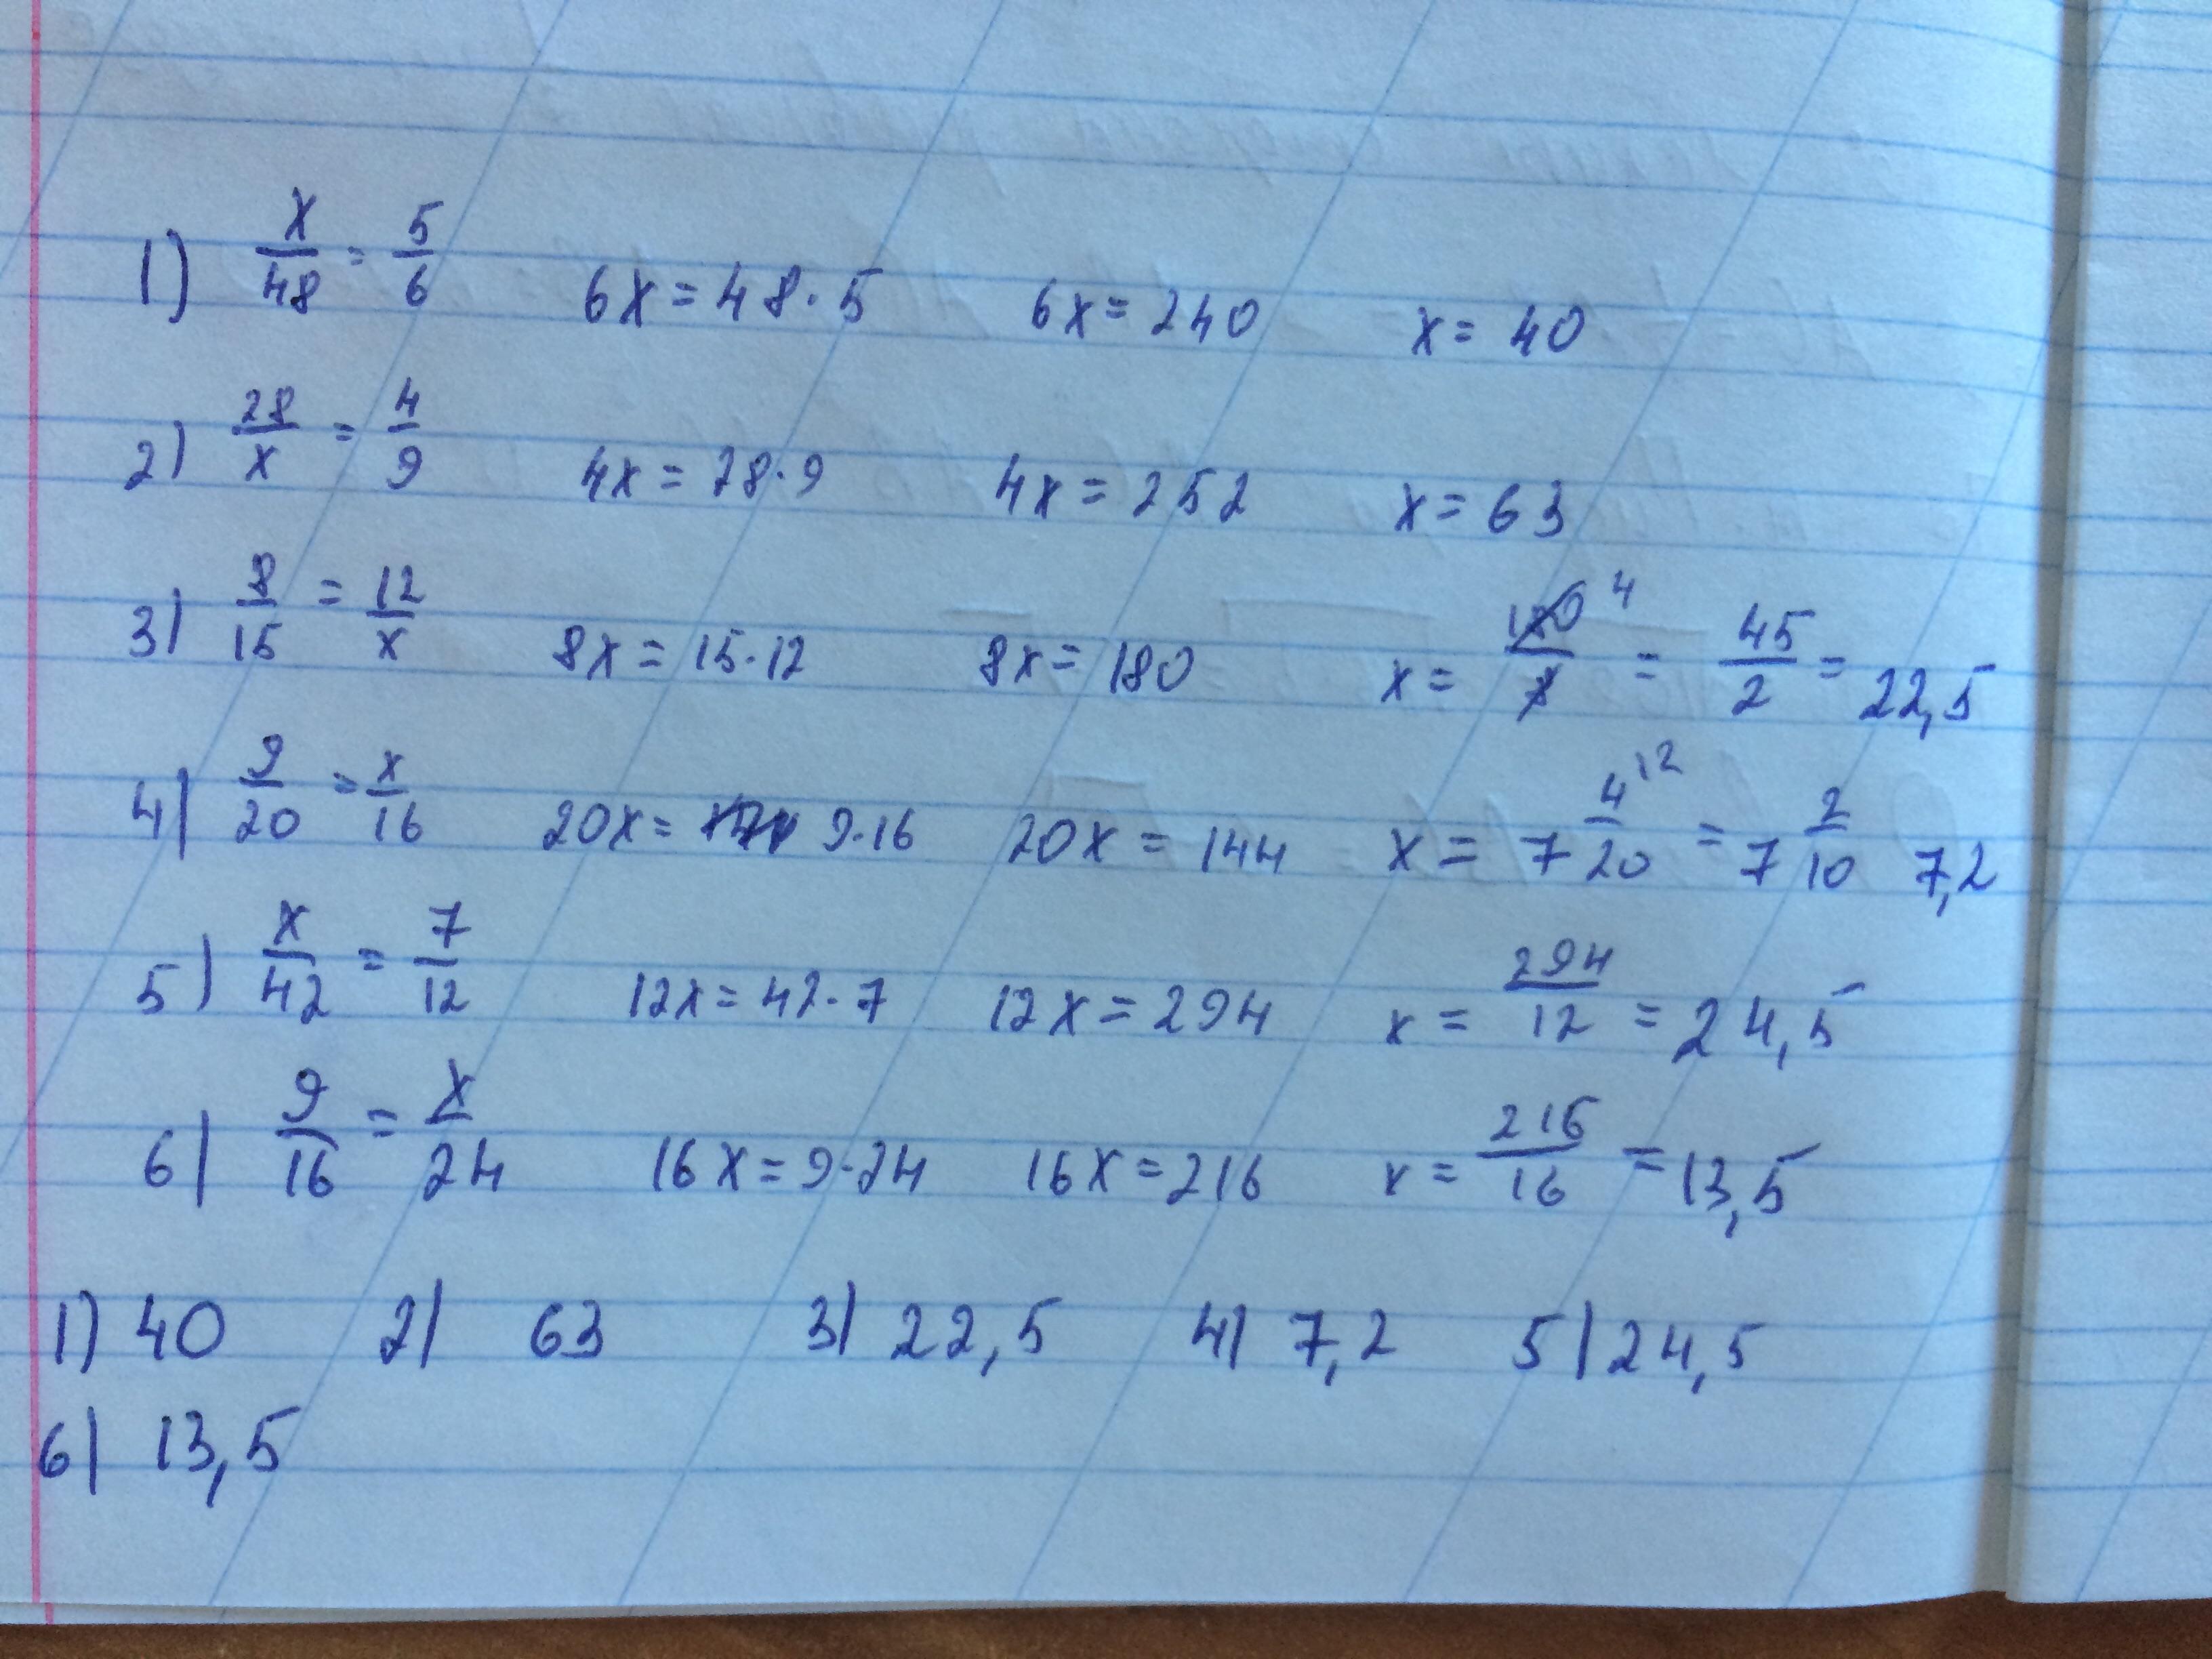 1) x/48 = 5/6 6x = 48·5 6x = 240 x = 40
2) 28/x = 4/9 4x = 28·9 4x = 252 x = 63
3) 8/15 = 12/x 8x = 15·12 8x = 180 x = 180/8 4 = 45/2 = 22,5
4) 9/20 = x/16 20x = 9·16 20x = 144 x = 7 4/20 |2 = 7 2/10 7,2
5) x/42 = 7/12 12x = 42·7 12x = 294 x = 294/12 = 24,5
6) 9/16 = x/24 16x = 9·24 16x = 216 x = 216/16 = 13,5
1) 40 2) 63 3) 22,5 4) 7,2 5) 24,5
6) 13,5